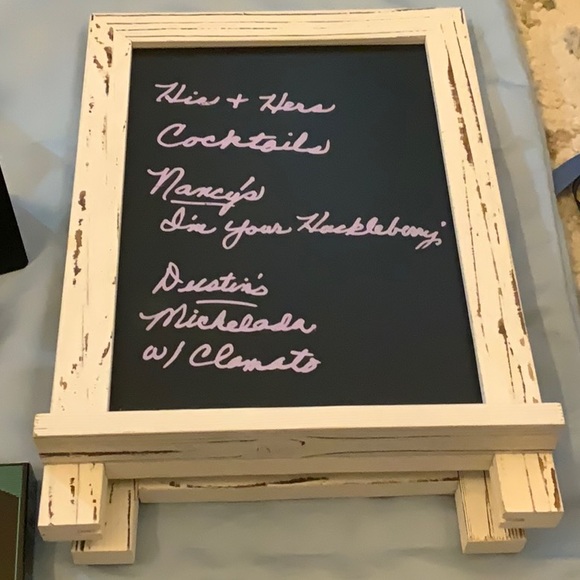 His + Hers
Cocktails
Nancy's
I'm your Huckleberry
Dustin's
Michelada
w/ Clamato